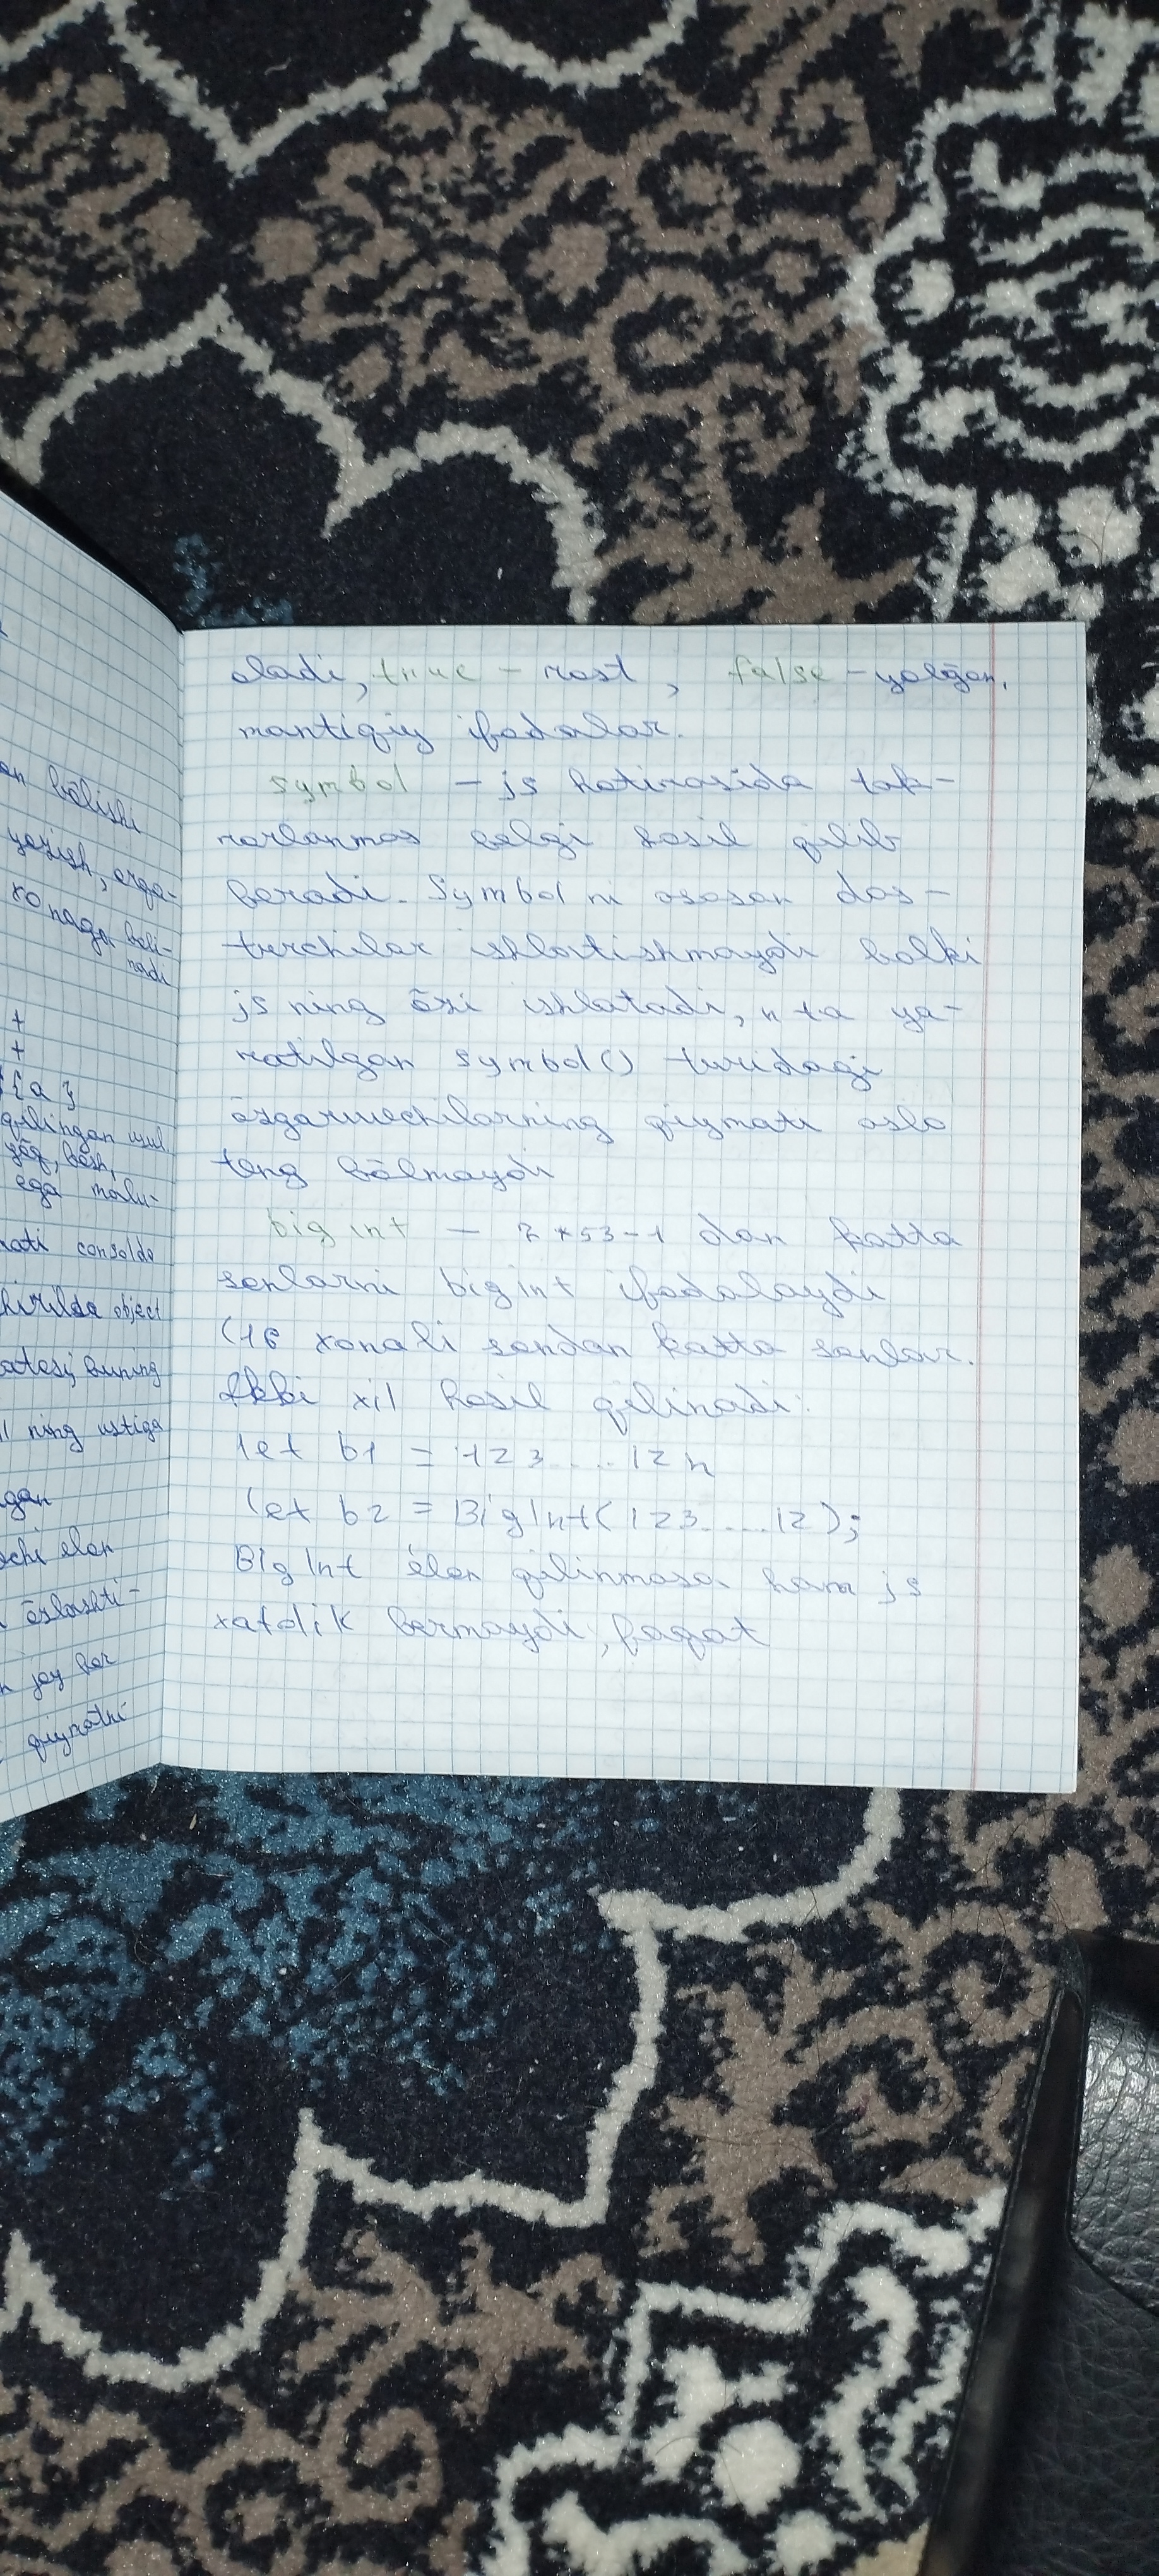 en bōlishi
yozish, orga-
xonaga beli-
nadi
+
+
{a}
qilingan usul
yōq, bōsh,
ega malu-
mati consolda
object
buning
ning ustiga
gan
chi elon
ōzlashti-
joy bor
qiymatni
oladi, true - rost, false - yolğon,
mantiqiy ifodalar.
symbol - js hotirasida tak-
rorlanmas belgi hosil qilib
beradi. Symbol ni asosan das-
turchilar ishlatishmaydi balki
js ning ōzi ishlatadi, n ta ya-
ratilgan symbol() turidagi
ōzgaruvchilarning qiymati aslo
teng bōlmaydi
bigint - 2**53-1 dan katta
sonlarni bigint ifodalaydi
(16 xonali sondan katta sonlar.
Ikki xil hosil qilinadi:
let b1 = 123....12n
let b2 = BigInt(123....12);
BigInt élon qilinmasa ham js
xatolik bermaydi, faqat